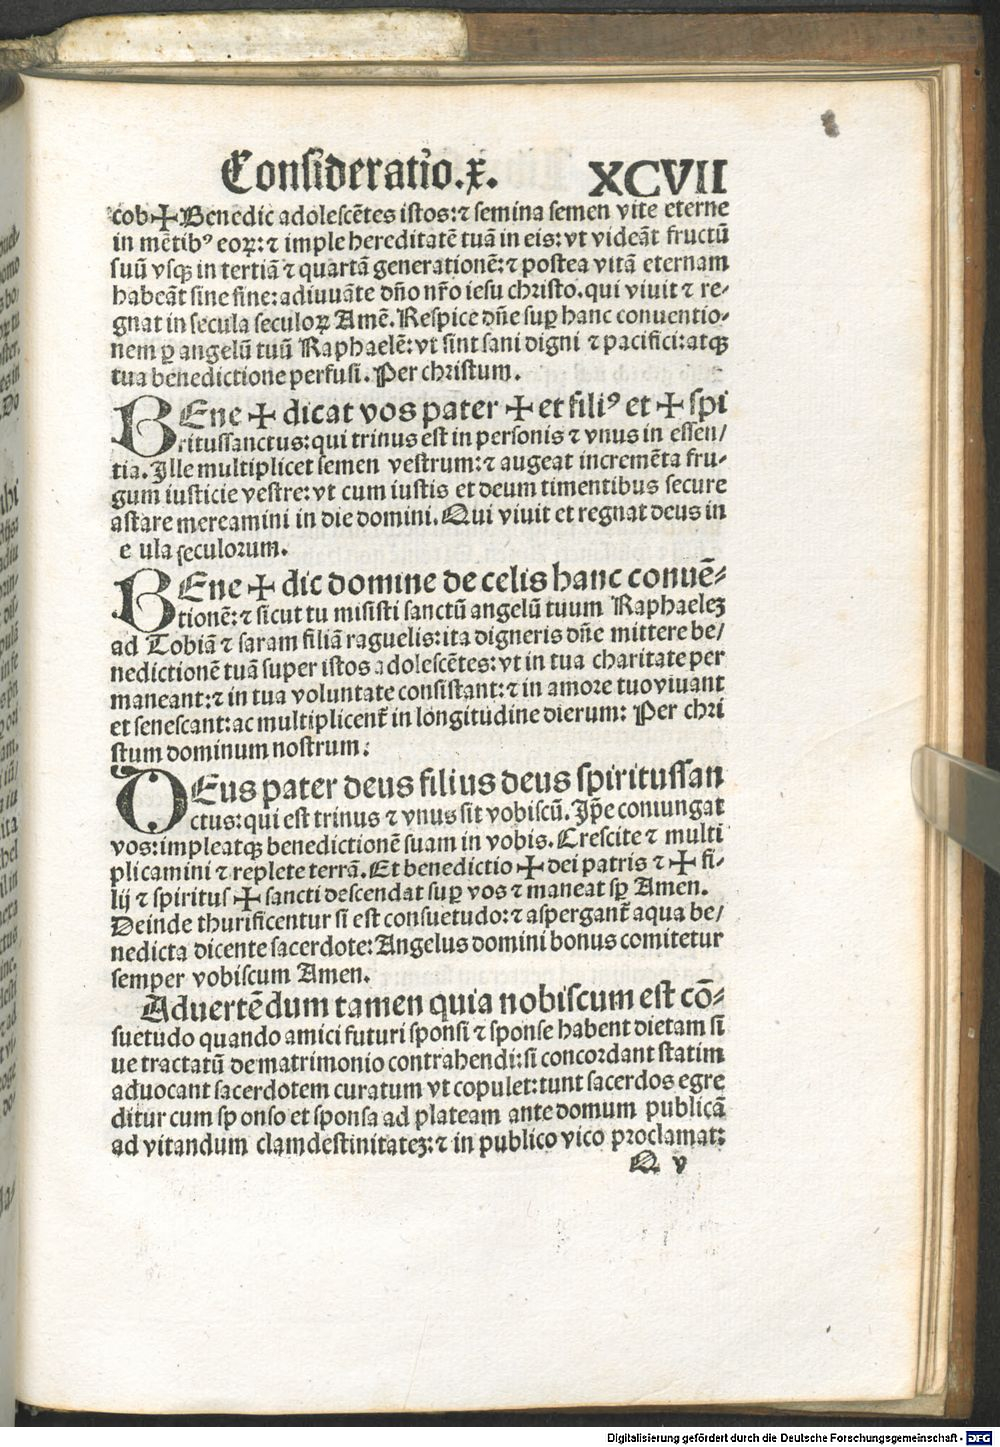 Consideratio.x. XCVII
cob✠Benedic adolescētes istos:⁊ semina semen vite eterne
in mētibꝰ eoꝝ:⁊ imple hereditatē tuā in eis:vt videāt fructū
suū vsqꝫ in tertiā ⁊ quartā generationē:⁊ postea vitā eternam
habeāt sine fine:adiuuāte dn̄o nr̄o iesu christo.qui viuit ⁊ re-
gnat in secula seculoꝝ Amē.Respice dn̄e suꝑ hanc conuentio-
nem ꝑ angelū tuū Raphaelē:vt sint sani digni ⁊ pacifici:atqꝫ
tua benedictione perfusi.Per christum.
BEne ✠ dicat vos pater ✠ et filiꝰ et ✠ spi
ritussanctus:qui trinus est in personis ⁊ vnus in essen/
tia.Ille multiplicet semen vestrum:⁊ augeat incremēta fru-
gum iusticie vestre:vt cum iustis et deum timentibus secure
astare mereamini in die domini.Qui viuit et regnat deus in
e ula seculorum.
BEne ✠ dic domine de celis hanc conuē-
tionē:⁊ sicut tu misisti sanctū angelū tuum Raphaeleꝫ
ad Tobiā ⁊ saram filiā raguelis:ita digneris dn̄e mittere be/
nedictionē tuā super istos adolescētes:vt in tua charitate per
maneant:⁊ in tua voluntate consistant:⁊ in amore tuo viuant
et senescant:ac multiplicent᷑ in longitudine dierum: Per chri
stum dominum nostrum:
DEus pater deus filius deus spiritussan
ctus:qui est trinus ⁊ vnus sit vobiscū.Ip̄e coniungat
vos:impleatqꝫ benedictionē suam in vobis.Crescite ⁊ multi
plicamini ⁊ replete terrā.Et benedictio ✠ dei patris ⁊ ✠ fi-
lij ⁊ spiritus ✠ sancti descendat suꝑ vos ⁊ maneat sꝑ Amen.
Deinde thurificentur si est consuetudo:⁊ aspergant᷑ aqua be/
nedicta dicente sacerdote:Angelus domini bonus comitetur
semper vobiscum Amen.
Aduertēdum tamen quia nobiscum est cō-
suetudo quando amici futuri sponsi ⁊ sponse habent dietam si
ue tractatū de matrimonio contrahendi:si concordant statim
aduocant sacerdotem curatum vt copulet:tunt sacerdos egre
ditur cum sp onso et sponsa ad plateam ante domum publicā
ad vitandum clamdestinitateꝫ:⁊ in publico vico proclamat:
Q v
Digitalisierung gefördert durch die Deutsche Forschungsgemeinschaft - DFG